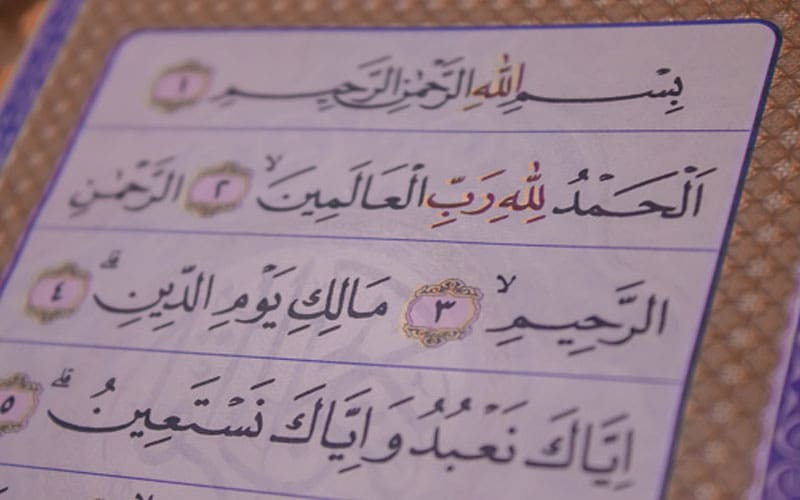 بِسْــمِ اللّٰهِ الرَّحْمٰنِ الرَّحِيــمِ ١
اَلْحَــمْدُ لِلّٰهِ رَبِّ الْعَالَمِينَۙ ٢ الرَّحْمٰنِ
الرَّحِيمِۙ ٣ مَالِكِ يَوْمِ الدِّينِۗ ٤
اِيَّاكَ نَعْبُدُ وَاِيَّاكَ نَسْتَعِينُۗ ٥